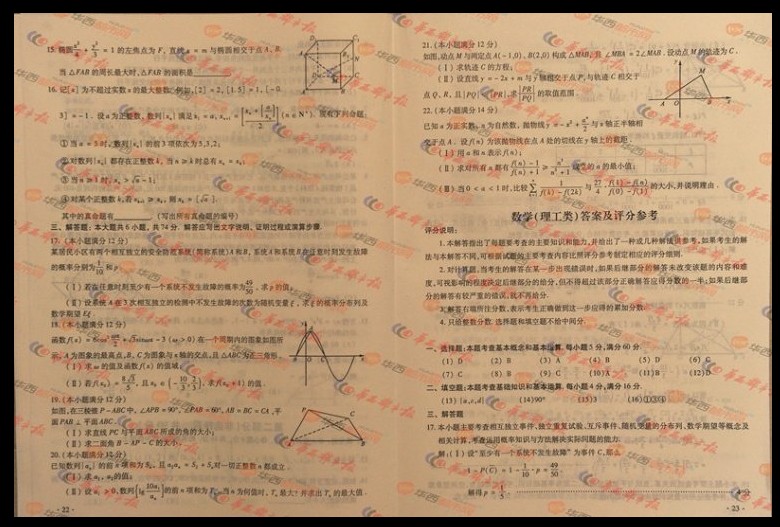 15. 椭圆x²/4 + y²/3 = 1 的左焦点为 F, 直线 x = m 与椭圆相交于点 A、B.
当△FAB 的周长最大时,△FAB 的面积是
16. 记[x] 为不超过实数 x 的最大整数. 例如,[2] = 2,[1.5] = 1,[-0.
3] = -1. 设 a 为正整数,数列{xₙ} 满足 x₁ = a, (n∈N*). 现有下列命题:
①当 a = 5 时,数列{xₙ} 的前 3 项依次为 5,3,2;
②对数列{xₙ} 都存在正整数 k, 当 n≥k 时总有 xₙ = xₖ;
③当 n≥1 时, xₙ > √a - 1;
④对某个正整数 k, 若 xₖ₊₁ ≥ xₖ, 则 xₖ = [√a].
其中的真命题有 (写出所有真命题的编号)
三、解答题: 本大题共 6 小题, 共 74 分. 解答应写出文字说明、证明过程或演算步骤.
17. (本小题满分 12 分)
某居民小区有两个相互独立的安全防范系统(简称系统) A 和 B, 系统 A 和系统 B 在任意时刻发生故障
的概率分别为 1/10 和 p
(Ⅰ) 若在任意时刻至少有一个系统不发生故障的概率为 49/50, 求 p 的值;
(Ⅱ) 设系统 A 在 3 次相互独立的检测中不发生故障的次数为随机变量 ξ, 求 ξ 的概率分布列及
数学期望 Eξ.
18. (本小题满分 12 分)
函数 f(x) = 6cos² ωx/2 + √3sinωx - 3 (ω > 0) 在一个周期内的图象如图所
示, A 为图象的最高点, B、C 为图象与 x 轴的交点, 且△ABC 为正三角形.
(Ⅰ) 求 ω 的值及函数 f(x) 的值域;
(Ⅱ) 若 f(x₀) = 8√3/5, 且 x₀∈(-10/3, 2/3), 求 f(x₀ + 1) 的值.
19. (本小题满分 12 分)
如图, 在三棱锥 P - ABC 中, ∠APB = 90°, ∠PAB = 60°, AB = BC = CA, 平
面 PAB ⊥ 平面 ABC.
(Ⅰ) 求直线 PC 与平面 ABC 所成的角的大小;
(Ⅱ) 求二面角 B - AP - C 的大小.
20. (本小题满分 12 分)
已知数列{aₙ} 的前 n 项和为 Sₙ, 且 a₂aₙ = S₂ + Sₙ 对一切正整数 n 都成立.
(Ⅰ) 求 a₁, a₂ 的值;
(Ⅱ) 设 a₁ > 0, 数列{lg 10a₁/aₙ} 的前 n 项和为 Tₙ. 当 n 为何值时, Tₙ 最大? 并求出 Tₙ 的最大值.
· 22 ·
21. (本小题满分 12 分)
如图, 动点 M 与两定点 A(-1,0)、B(2,0) 构成△MAB, 且∠MBA = 2∠MAB. 设动点 M 的轨迹为 C.
(Ⅰ) 求轨迹 C 的方程;
(Ⅱ) 设直线 y = -2x + m 与 y 轴相交于点 P, 与轨迹 C 相交于
点 Q、R, 且|PQ| < |PR|, 求 |PR|/|PQ| 的取值范围.
22. (本小题满分 14 分)
已知 a 为正实数, n 为自然数, 抛物线 y = -x² + aⁿ/2 与 x 轴正半轴相
交于点 A. 设 f(n) 为该抛物线在点 A 处的切线在 y 轴上的截距.
(Ⅰ) 用 a 和 n 表示 f(n);
(Ⅱ) 求对所有 n 都有 (f(n) - 1)/(f(n) + 1) ≥ n³/(n³ + 1) 成立的 a 的最小值;
(Ⅲ) 当 0 < a < 1 时, 比较 1/(f(k) - f(2k)) 与 27/4 · (f(1) - f(n))/(f(0) - f(1)) 的大小, 并说明理由.
数学(理工类)答案及评分参考
评分说明:
1. 本解答指出了每题要考查的主要知识和能力, 并给出了一种或几种解法供参考, 如果考生的解
法与本解答不同, 可根据试题的主要考查内容比照评分参考制定相应的评分细则.
2. 对计算题, 当考生的解答在某一步出现错误时, 如果后继部分的解答未改变该题的内容和难
度, 可视影响的程度决定后继部分的给分, 但不得超过该部分正确解答应得分数的一半; 如果后继部
分的解答有较严重的错误, 就不再给分.
3. 解答右端所注分数, 表示考生正确做到这一步应得的累加分数.
4. 只给整数分数. 选择题和填空题不给中间分.
一、选择题: 本题考查基本概念和基本运算. 每小题 5 分, 满分 60 分.
(1) D (2) B (3) A (4) B (5) D (6) C
(7) C (8) B (9) C (10) A (11) B (12) D
二、填空题: 本题考查基础知识和基本运算. 每小题 4 分, 满分 16 分.
(13) {a,c,d} (14) 90° (15) 3 (16) ①③④
三、解答题
17. 本小题主要考查相互独立事件、独立重复试验、互斥事件、随机变量的分布列、数学期望等概念及
相关计算, 考查运用概率知识与方法解决实际问题的能力.
解: (Ⅰ) 设“至少有一个系统不发生故障”为事件 C, 那么
1 - P(C̄) = 1 - 1/10 · p = 49/50.
解得 p = 1/5. 4 分
· 23 ·